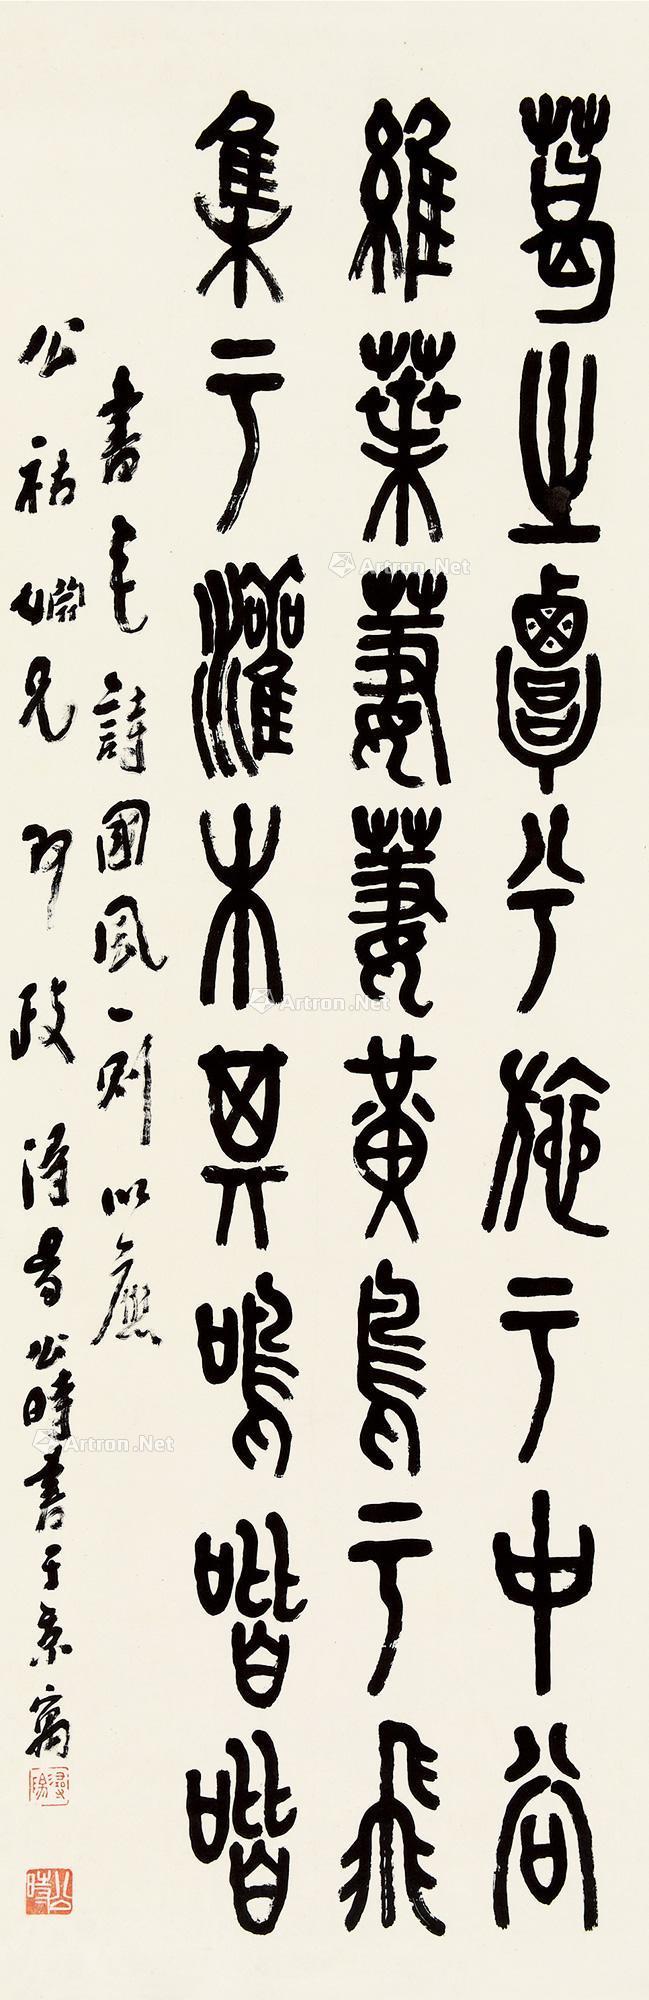 葛之覃兮施于中谷
維葉萋萋黃鳥于飛
集于灌木其鳴喈喈
書毛詩國風一則以應
公祜姻兄 即政 潯陽公時書于京寓
公時
Artron.Net
Artron.Net
Artron.Net